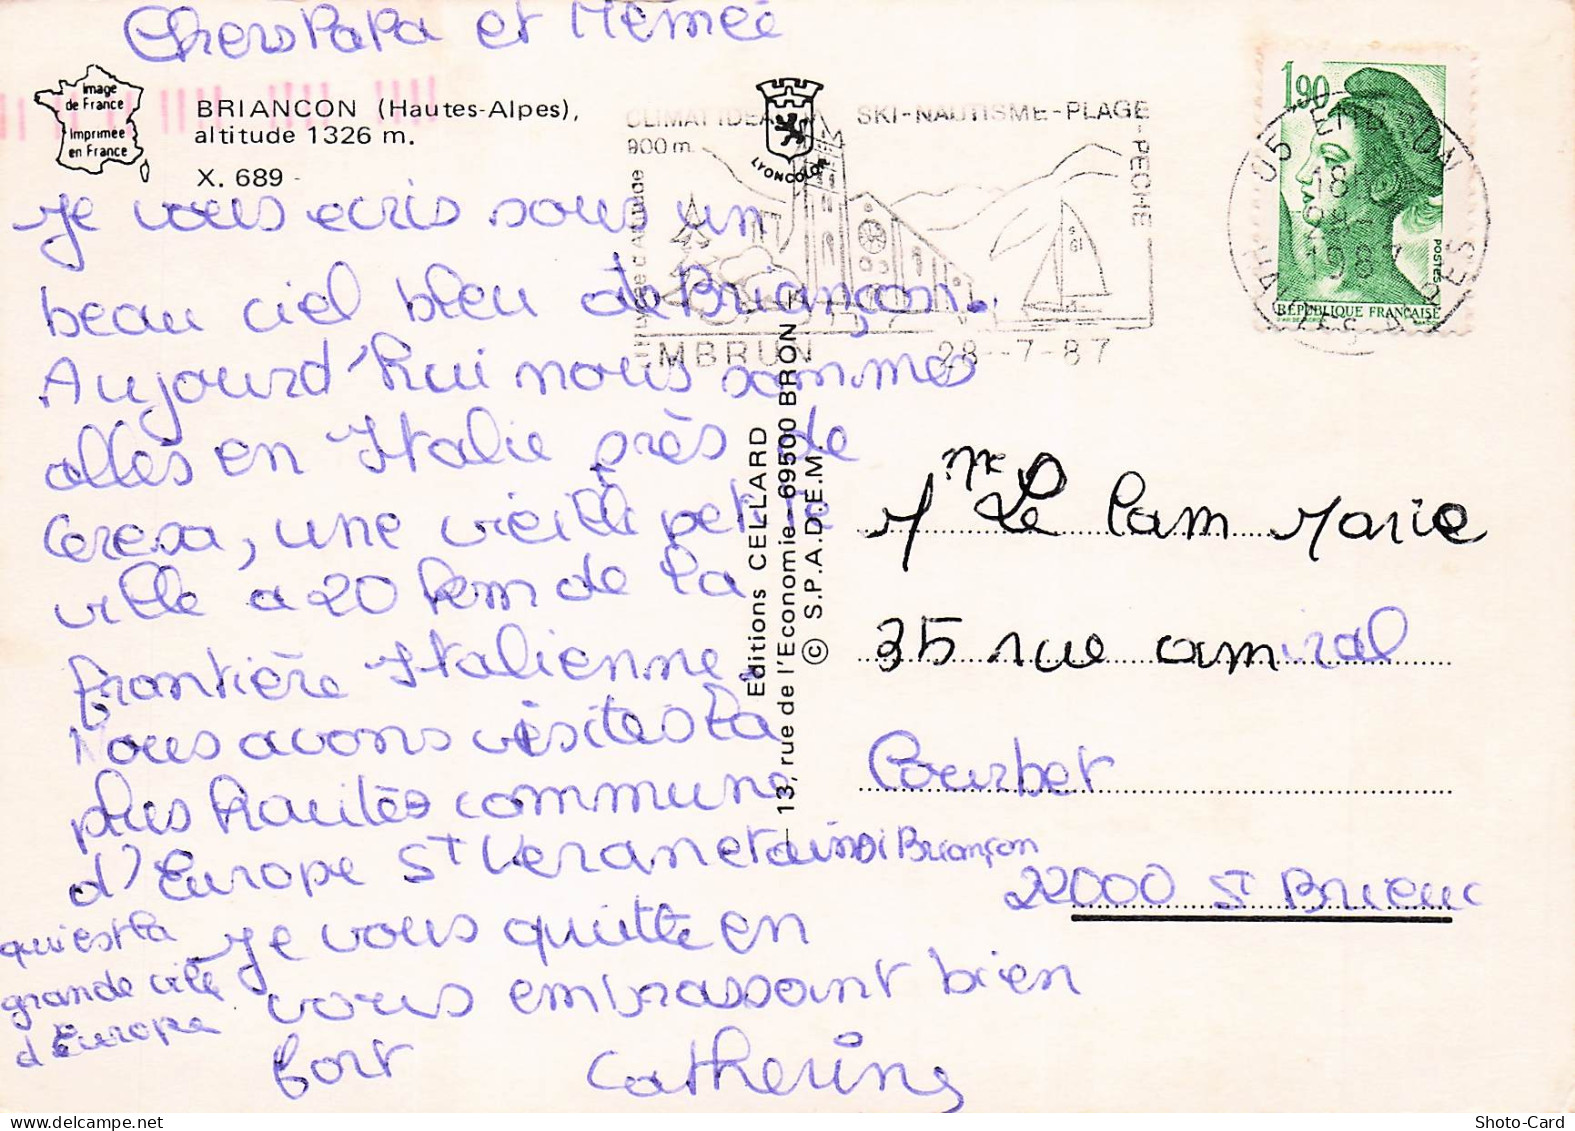 Chers Papa et Mémée
image
de France
Imprimée
en France
BRIANCON (Hautes-Alpes),
altitude 1326 m.
X. 689 -
LYONCOLOR
CLIMAT IDEAL
900 m
d'Altitude
SKI-NAUTISME-PLAGE
-PECHE
EMBRUN
28--7-87
05 EMBRUN
HAUTES ALPES
1,90
POSTES
REPUBLIQUE FRANÇAISE
Je vous ecris sous un
beau ciel bleu de Briançon.
Aujourd'hui nous sommes
allés en Italie près de
Ceresa, une vieille petite
ville a 20 km de la
frontière Italienne.
Nous avons visites la
plus hautes commune
d'Europe St Veran et ainsi Briançon
qui est la
grande ville
d'Europe
Je vous quitte en
vous embrassant bien
fort Catherine
Editions CELLARD
13, rue de l'Economie - 69500 BRON
© S.P.A.D.E.M.
Mme Le Cam Marie
35 rue amiral
Courbet
22000 St Brieuc
Shoto-Card